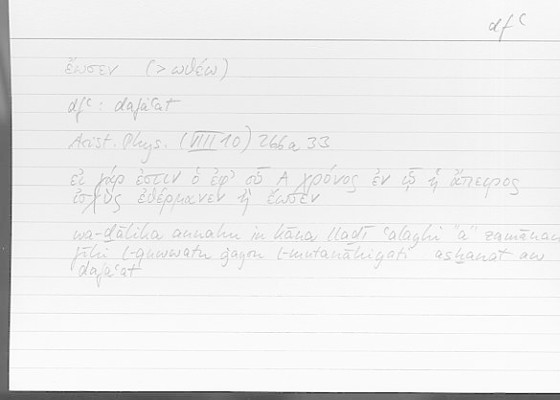 dfʿ
ἔωσεν (> ὠθέω)
dfʿ : dafaʿat
Arist. Phys. (VIII 10) 266a 33
εἰ γάρ ἐστιν ὁ ἐφ' οὗ A χρόνος ἐν ᾧ ἡ ἄπειρος
ἰσχὺς ἐθέρμανεν ἢ ἔωσεν
wa-ḏālika annahu in kāna llaḏī ʿalayhi "a" zamānan
fīhi l-quwwatu l-mutanāhiyati asḫanat aw
dafaʿat